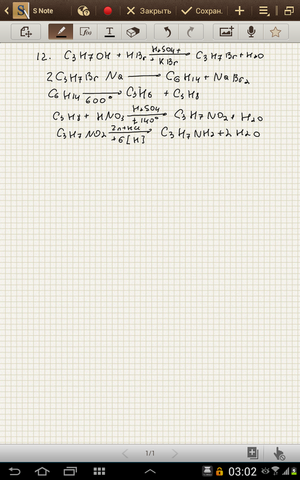 S Note
Закрыть
Сохран.
12. C3H7OH + HBr H2SO4 + KBr C3H7Br + H2O
2C3H7Br Na → C6H14 + NaBr2
C6H14 600° C3H6 + C3H8
C3H8 + HNO3 H2SO4 t 140° C3H7NO2 + H2O
C3H7NO2 Zn+HCl +6[H] C3H7NH2 + 2H2O
1/1
03:02